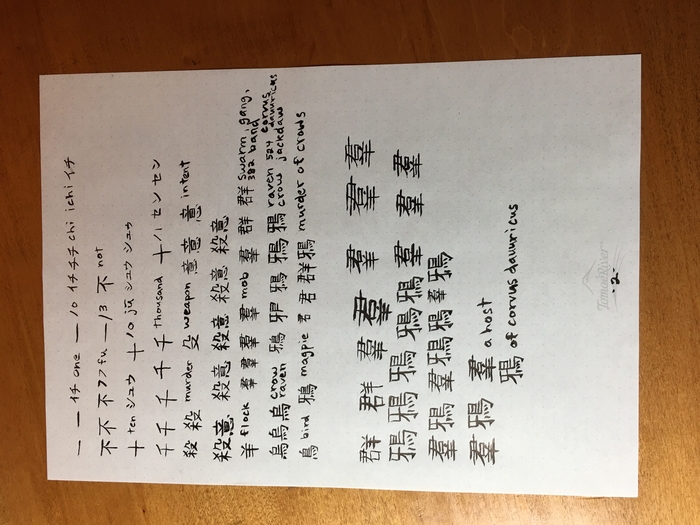 一 一 イチ one 一 ノ0 イチチ chi ichi イチ
不 不 不 フフ fu 一ノ3 不 not
十 ten シュウ 十 ノ0 jū シュウ シュウ
千 千 千 千 千 thousand 十ノ1 セン セン
殺 殺 murder 殳 weapon 意 意 意 intent
殺意 殺意 殺意 殺意 殺意
羊 flock 羣 羣 羣 羣 mob 羣 群 群 swarm, gang, 382 band
烏 烏 烏 crow raven 鴉 鴉 鴉 鴉 raven 524 crow corvus dauuricus jackdaw
鳥 bird 鴉 magpie 君 君 群鴉 murder of crows
群 群 羣 羣 羣 羣 羣
鴉 鴉 鴉 鴉 鴉 羣 羣 羣
羣 鴉 羣 鴉 鴉 羣 鴉
羣 鴉 羣 鴉 a host of corvus dauuricus
Tomoe River
2